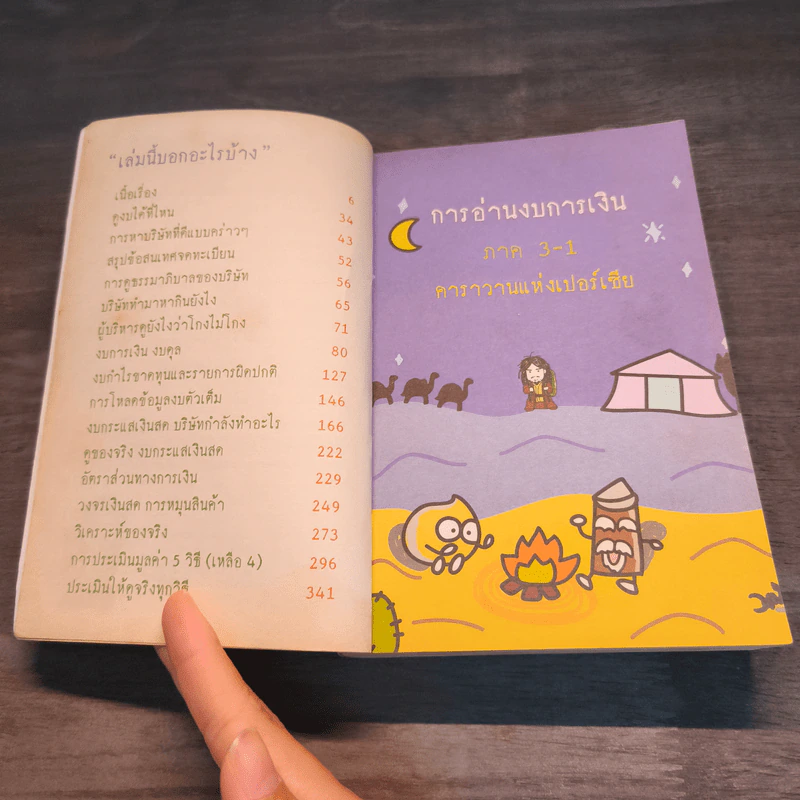 "เล่มนี้บอกอะไรบ้าง"
เนื้อเรื่อง 6
ดูงบได้ที่ไหน 34
การหาบริษัทที่ดีแบบคร่าวๆ 43
สรุปข้อสนเทศจดทะเบียน 52
การดูธรรมาภิบาลของบริษัท 56
บริษัททำมาหากินยังไง 65
ผู้บริหารดูยังไงว่าโกงไม่โกง 71
งบการเงิน งบดุล 80
งบกำไรขาดทุนและรายการผิดปกติ 127
การโหลดข้อมูลงบตัวเต็ม 146
งบกระแสเงินสด บริษัทกำลังทำอะไร 166
ดูของจริง งบกระแสเงินสด 222
อัตราส่วนทางการเงิน 229
วงจรเงินสด การหมุนสินค้า 249
วิเคราะห์ของจริง 273
การประเมินมูลค่า 5 วิธี (เหลือ 4) 296
ประเมินให้ดูจริงทุกวิธี 341
การอ่านงบการเงิน
ภาค 3-1
คาราวานแห่งเปอร์เซีย